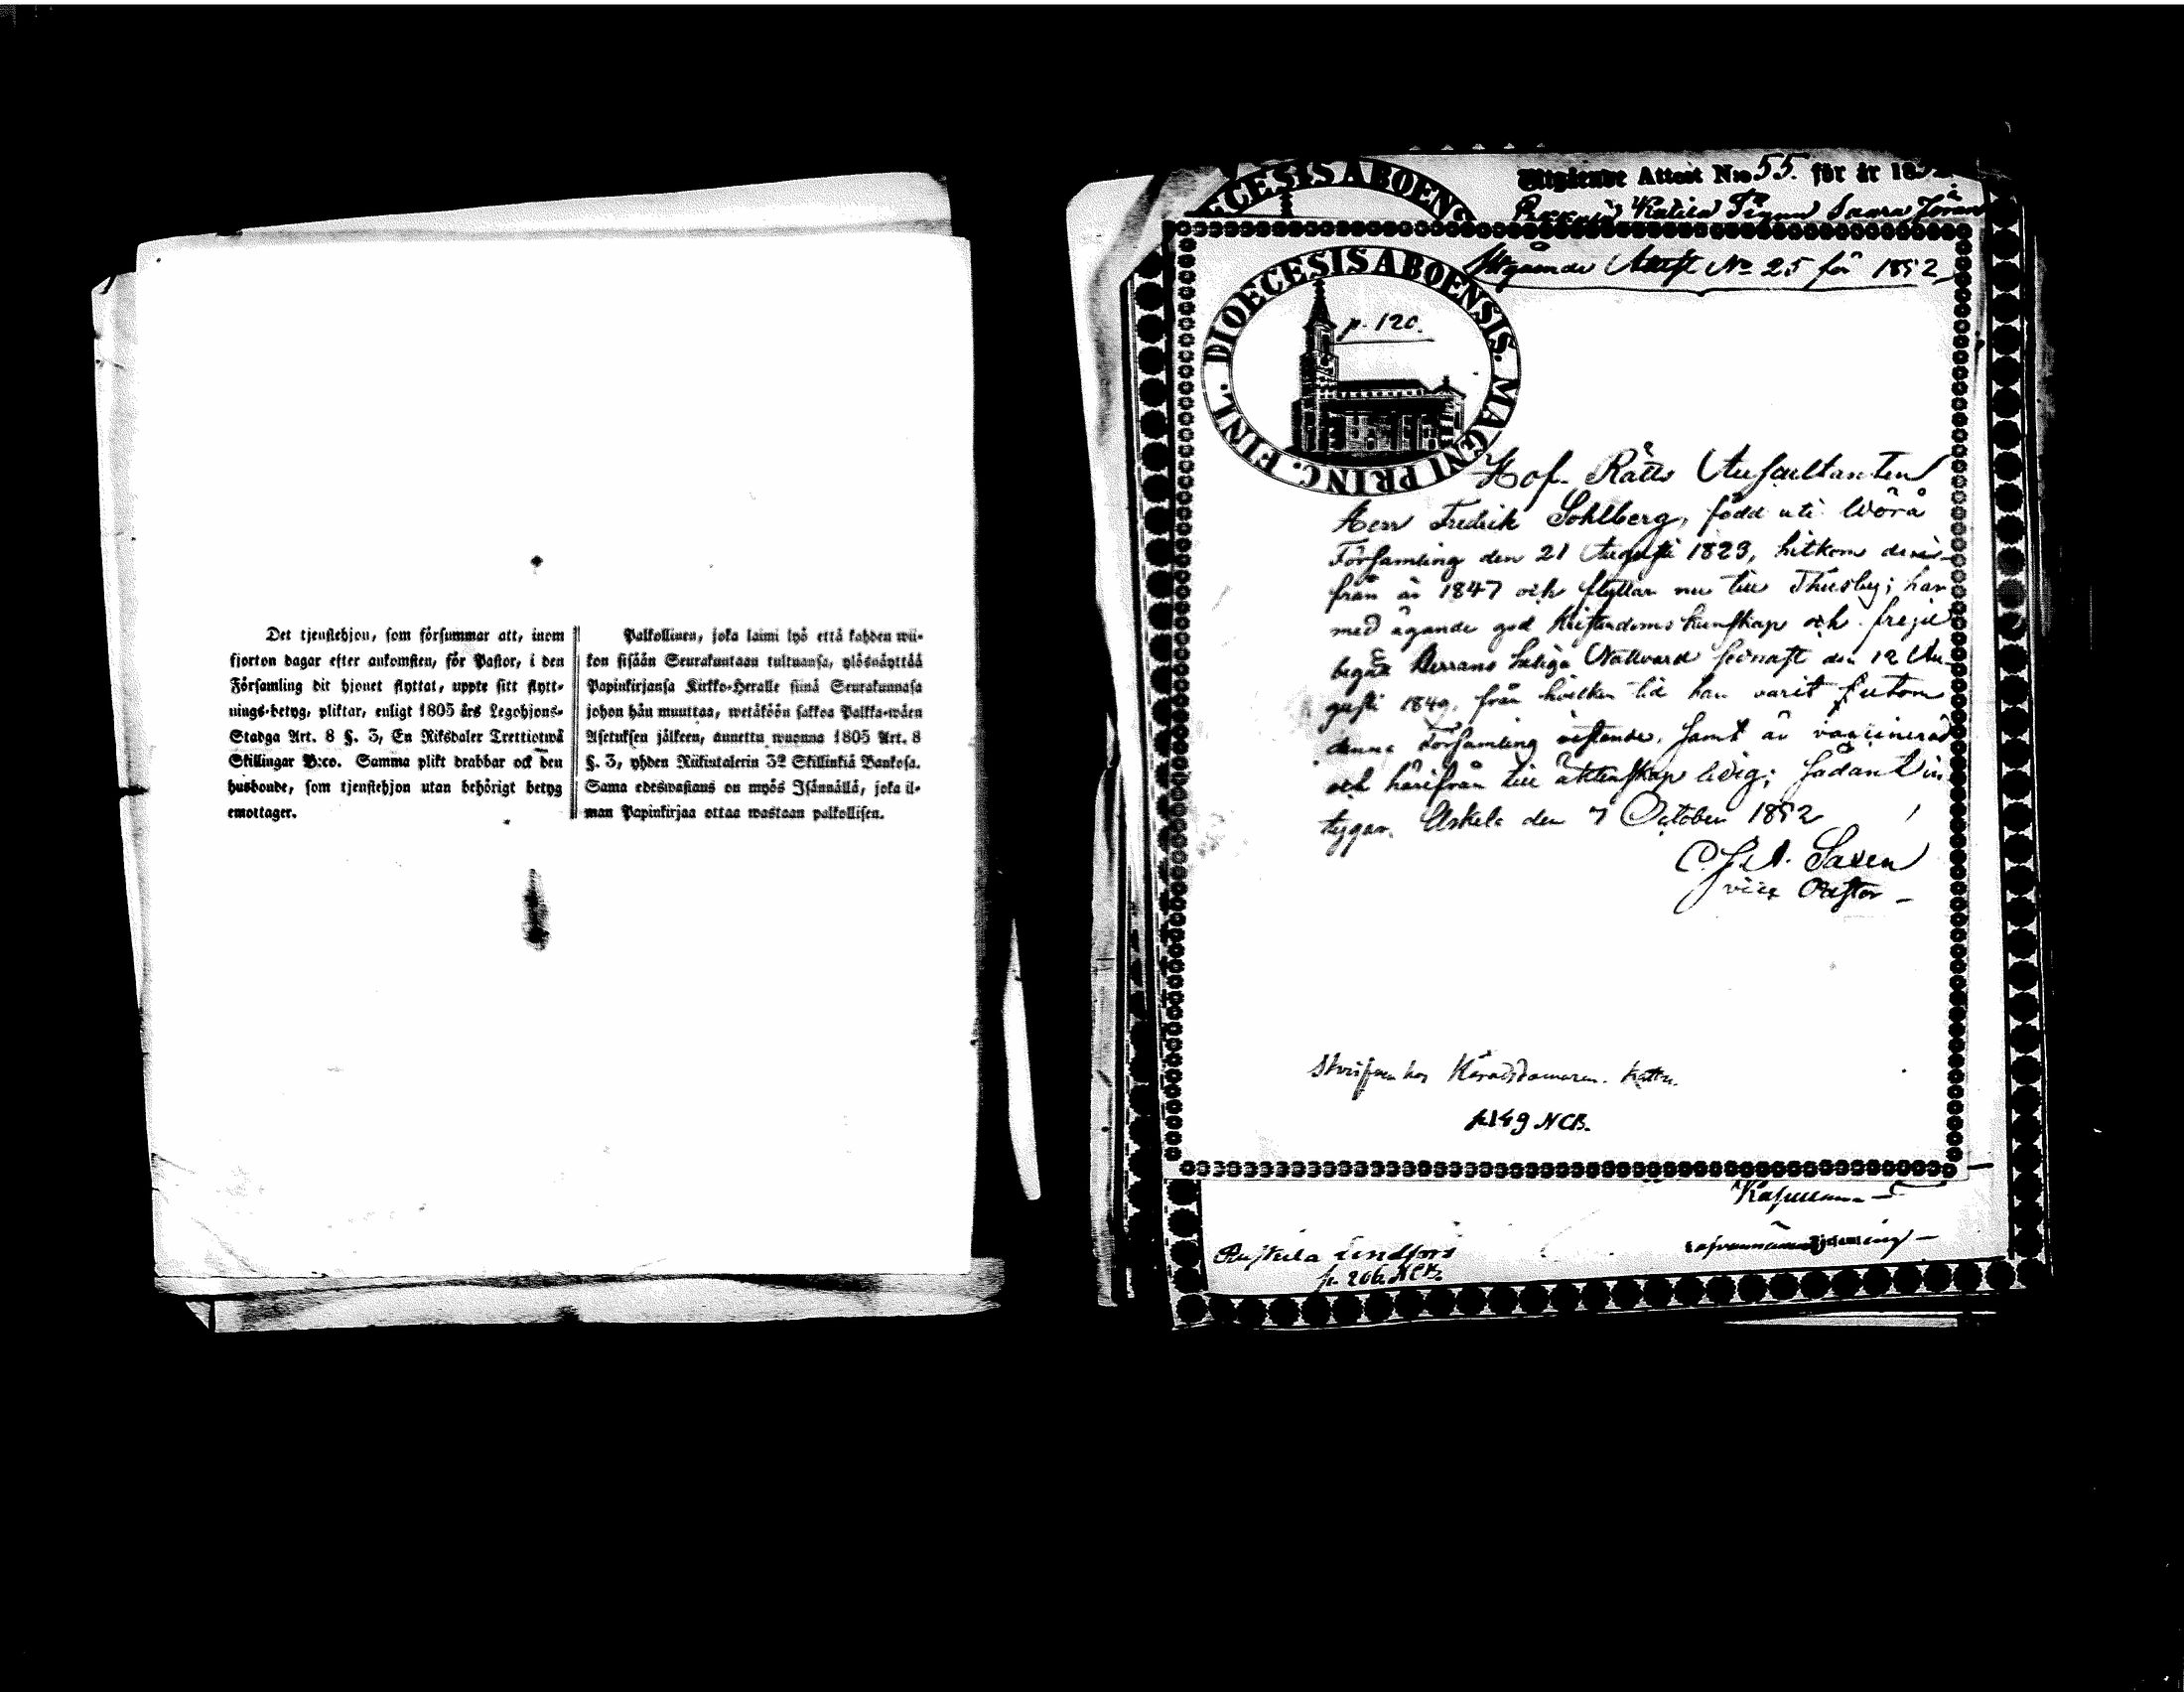 Det tjenstehjon, som försummar att, inom
fjorton dagar efter ankomsten, för Pastor, i den
Församling dit hjonet flyttat, uppte sitt flytt-
nings-betyg, pliktar, enligt 1805 års Legohjons-
Stadga Art. 8 §. 3, En Riksdaler Trettiotwå
Skillingar B:co. Samma plikt drabbar ock den
husbonde, som tjenstehjon utan behörigt betyg
emottager.
Palkollinen, joka laimi lyö että kahden wii-
kon sisään Seurakuntaan tultuansa, ylösnäyttää
Papinkirjansa Kirkko-Heralle siinä Seurakunnasa
johon hän muuttaa, wetäköön sakkoa Palkka-wäen
Asetuksen jälkeen, annettu wuonna 1805 Art. 8
§. 3, yhden Riikintalerin 32 Skillinkiä Bankosa.
Sama edeswastaus on myös Isännällä, joka il-
man Papinkirjaa ottaa wastaan palkollisen.
Utgående Attest N:o 55. för år 18
Pigan Saara
ECESIS ABOENS
Utgående Attest No 25 för 1852
DIOECESIS ABOENSIS. MAGNI PRINC. FINL.
p. 120.
Hof-Rätts Auscultanten
Herr Fredrik Sohlberg, född uti Wörå
Församling den 21 Augusti 1823, hitkom deri-
från år 1847 och flyttar nu till Thusby; har
med ägande god Kristendoms kunskap och frejd
begått Herrans Heliga Nattvard sednast den 12 Au-
gusti 1849, från hvilken tid han varit utom
denna Församling vistande, samt är vaccinerad
och härifrån till äktenskap ledig; sådant in-
tygar. Askola den 7 October 1852
Saxen
vice Pastor
Skrifven hos Häradsdomaren
p. 149 NCB.
Kapellan
Lindfors
p. 206 NCB.